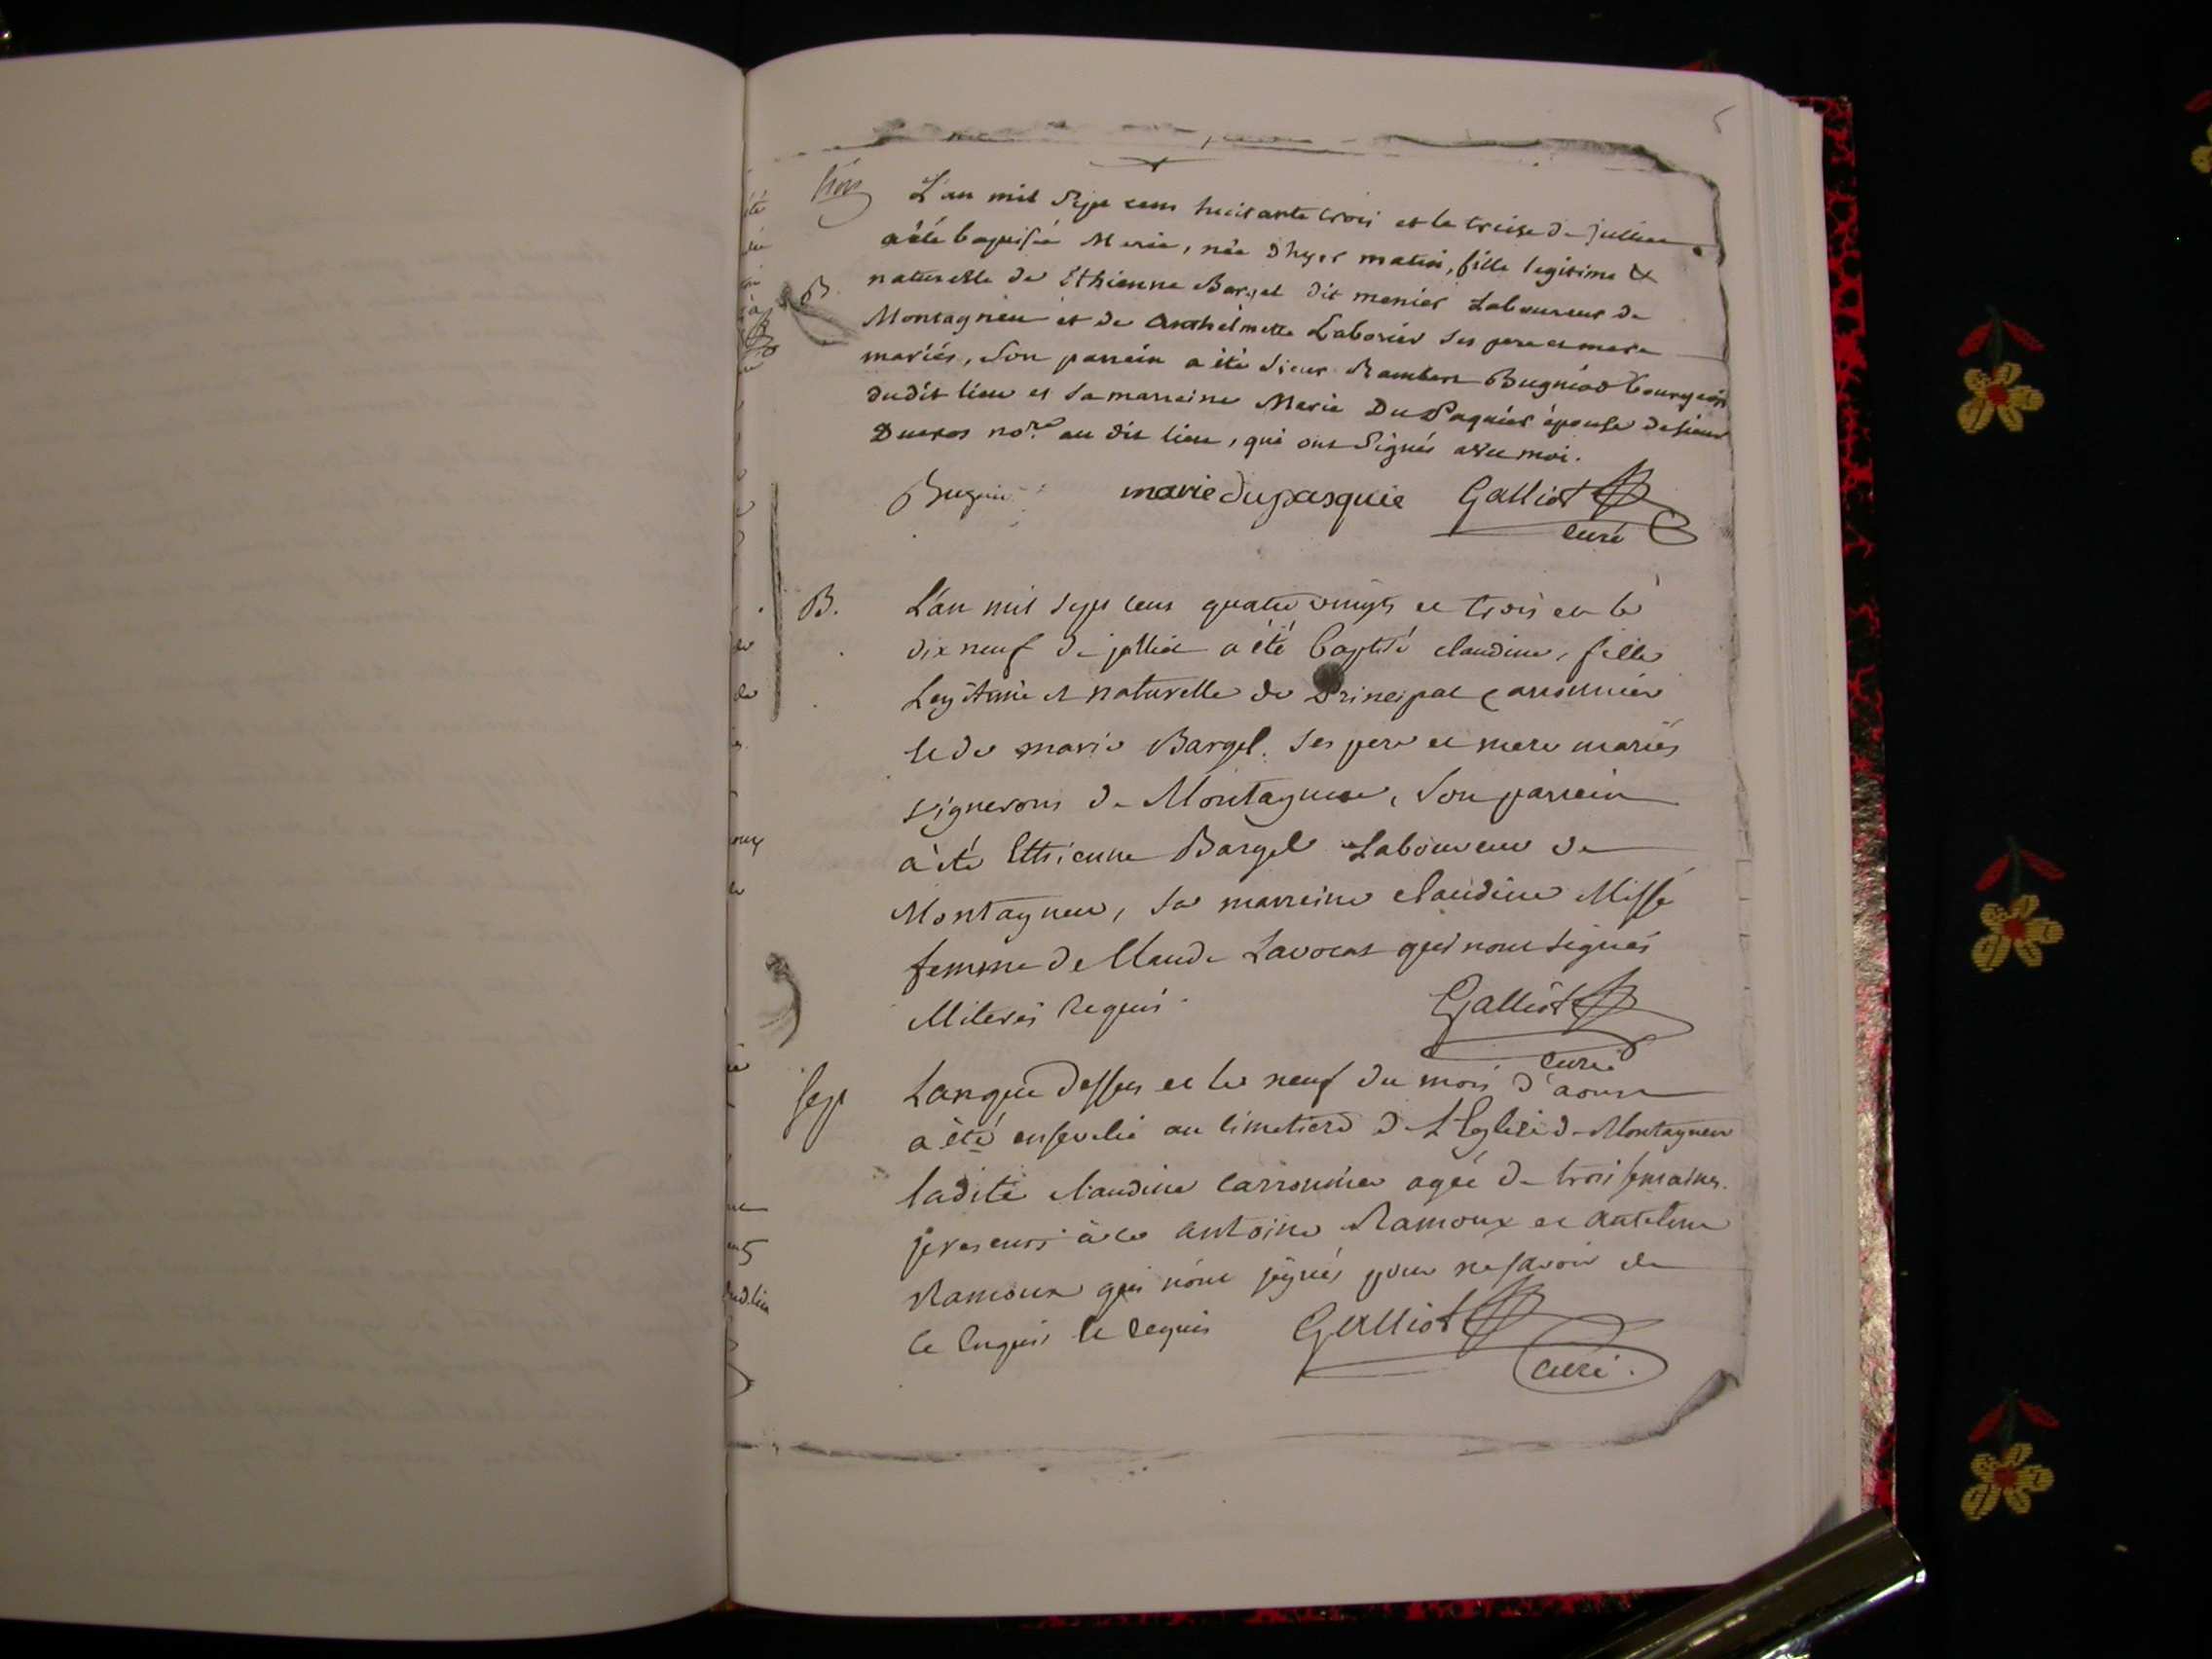 L'an mil sept cens huictante trois et le treize de juillet
a été baptisée Marie, née d'hyer matin, fille legitime &
B. naturelle de Ethienne Bargel dit menier Laboureur de
Montagnieu et de Anthelmette Laborier ses pere et mere
mariés, Son parrein a été Sieur Rambert Bugniod bourgeois
dudit lieu et Sa marreine Marie Du Paquier épouse de sieur
Ducros no.re au dit lieu, qui ont Signés avec moi.
marie dupasquie Galliot
curé
B. L'an mil sept cens quatre vingts et trois et le
dix neuf de juillet a été baptisé claudine, fille
Legitime et naturelle de Principal carronnier
et de marie Bargel. ses pere et mere mariés
vignerons de Montagnieu, Son parrein
a été Ethienne Bargel Laboureur de
Montagnieu, sa marreine claudine Missé
femme de Claude Lavocat qui n'ont signés
illiterés requis. Galliot
curé
Sept L'an que dessus et le neuf du mois d'aoust
a été ensevelie au cimetiere de L'Eglise de Montagnieu
ladite claudine carronnier agée de trois semaines.
presents à ce antoine Ramoux et antelme
Ramoux qui n'ont signés pour ne savoir de
ce enquis et requis Galliot
curé.